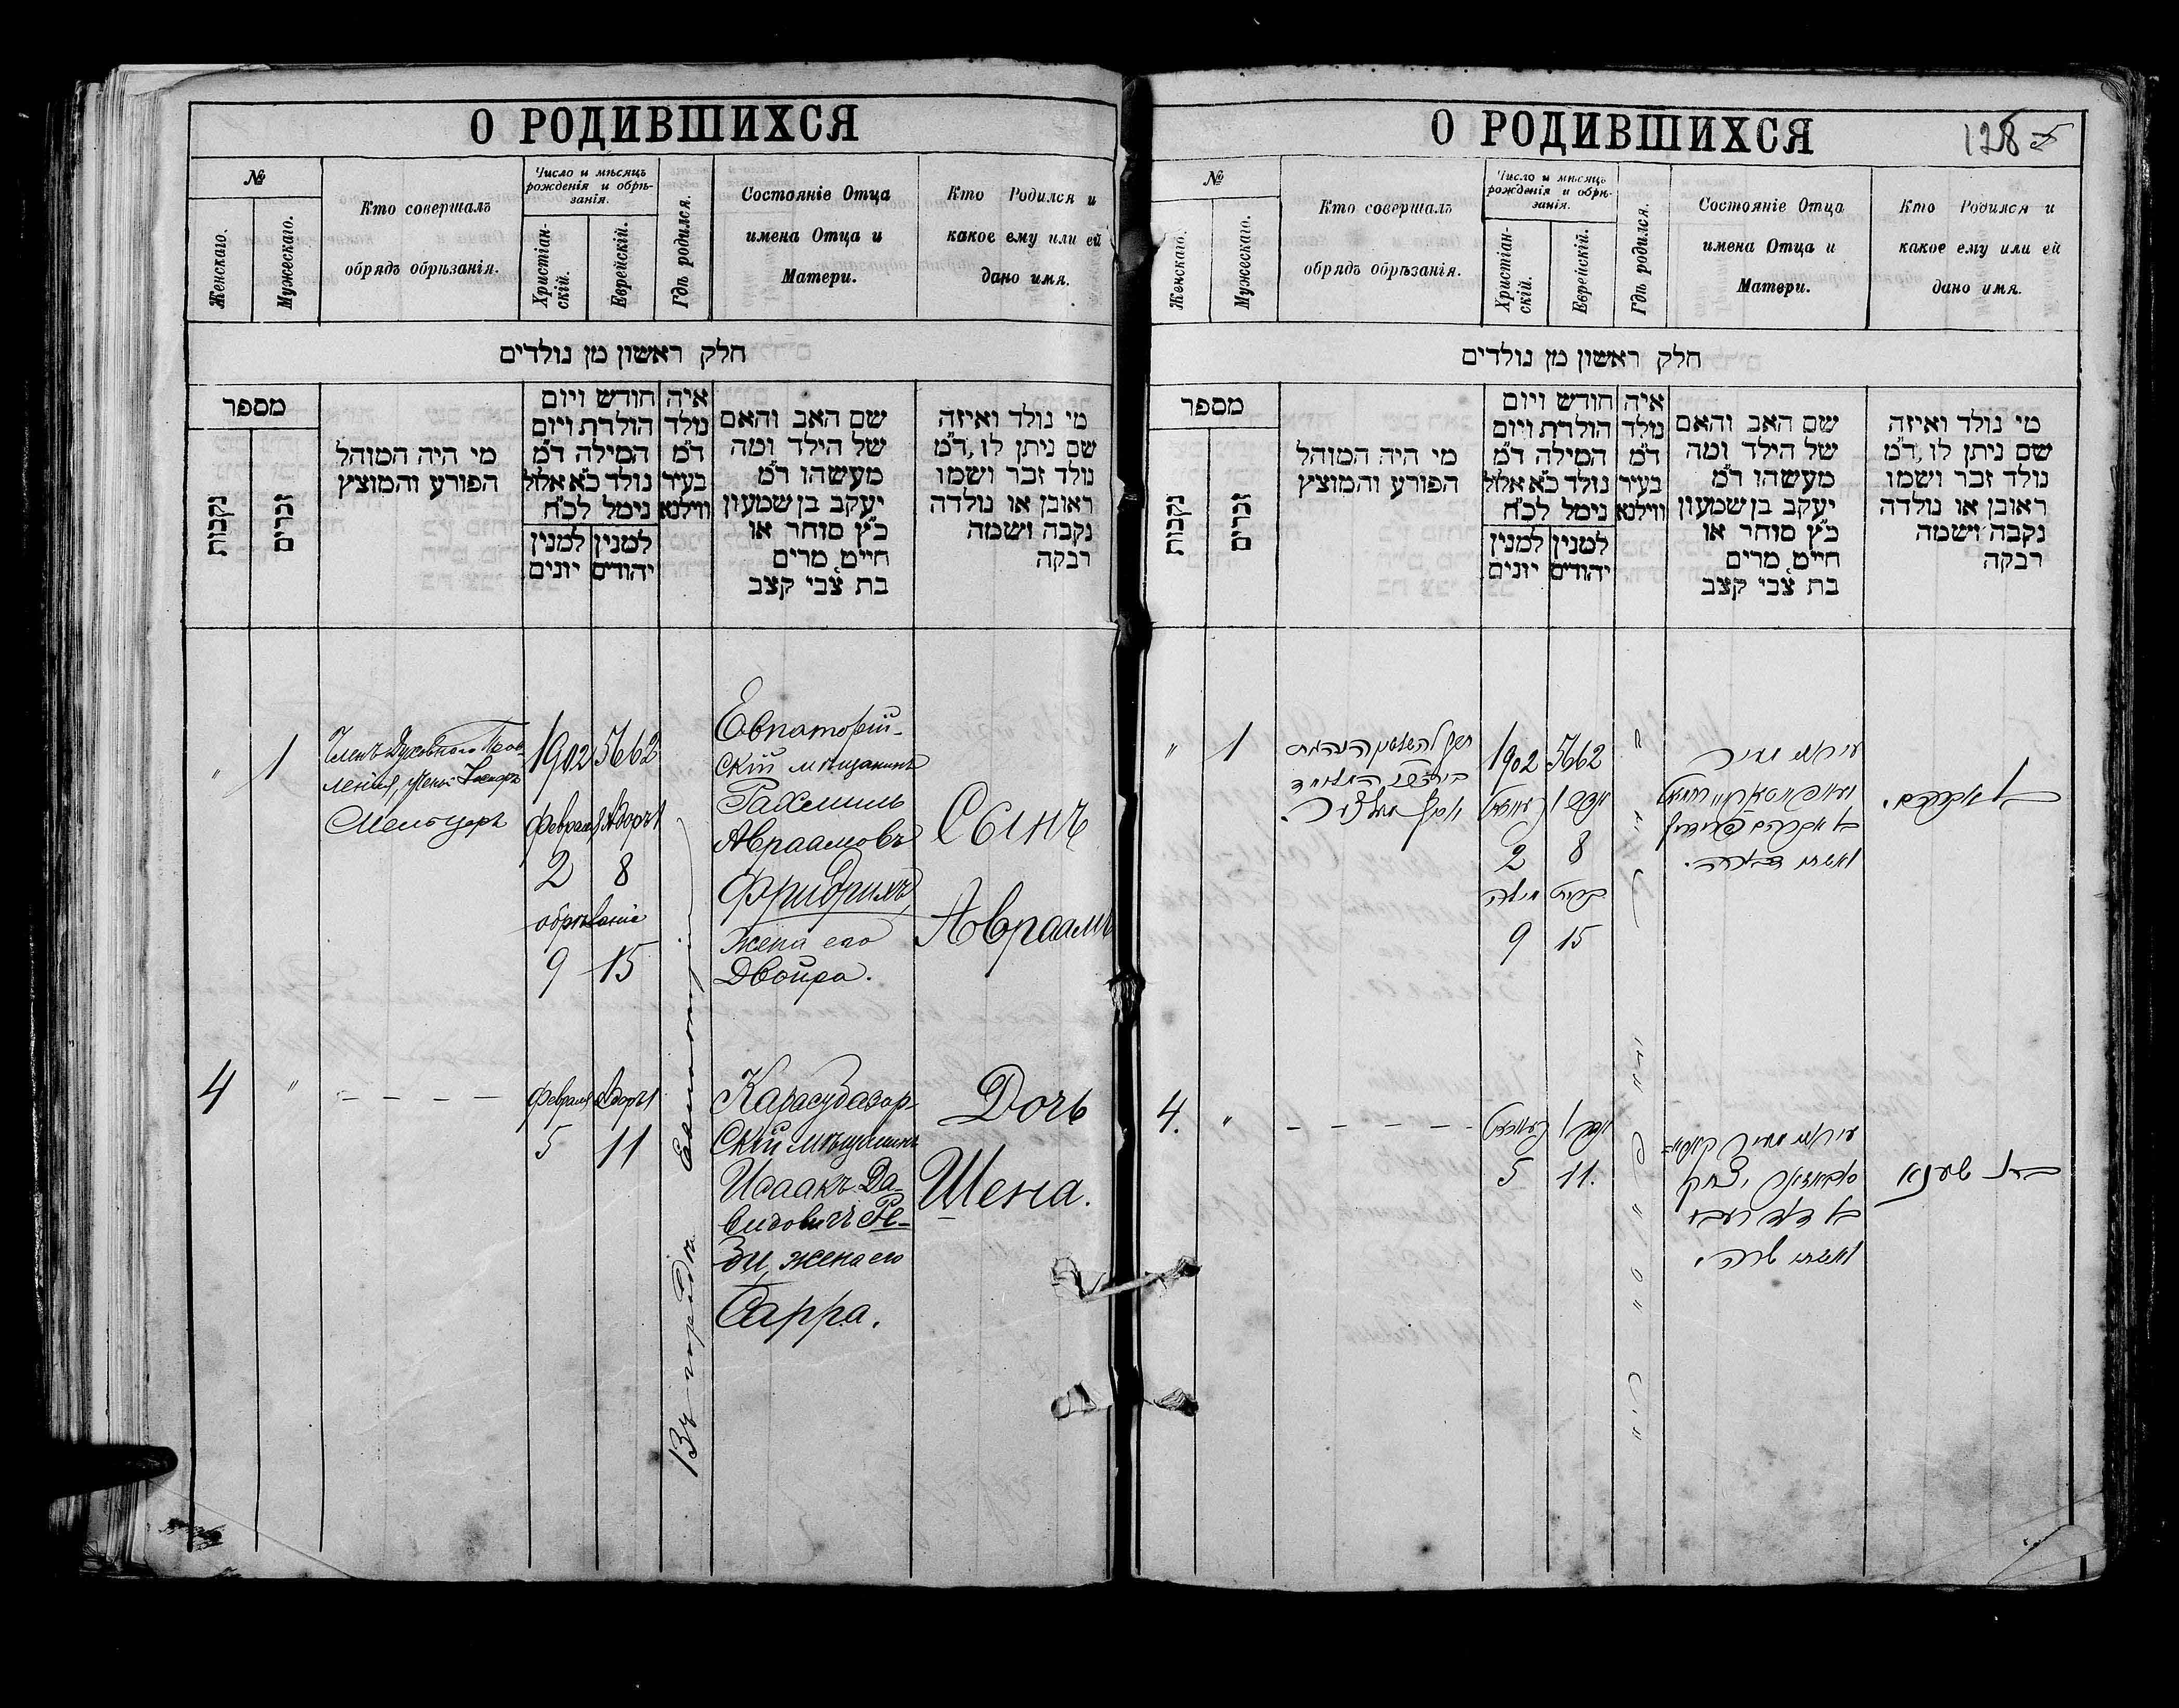 О РОДИВШИХСЯ
№
Женскаго.
Мужескаго.
Кто совершалъ
обрядъ обрѣзанія.
Число и мѣсяцъ
рожденія и обрѣ-
занія.
Христіан-
скій.
Еврейскій.
Гдѣ родился.
Состояніе Отца
имена Отца и
Матери.
Кто Родился и
какое ему или ей
дано имя.
חלק ראשון מן נולדים
מספר
נקבות
זכרים
מי היה המוהל
הפורע והמוצץ
חודש ויום
הולדת ויום
המילה ד״מ
נולד כ״א אלול
נימל לכ״ח
למנין
יונים
למנין
יהודים
איה
נולד
ד״מ
בעיר
ווילנא
שם האב והאם
של הילד ומה
מעשהו ד״מ
יעקב בן שמעון
כ״ץ סוחר או
חייט, מרים
בת צבי קצב
מי נולד ואיזה
שם ניתן לו, ד״מ
נולד זכר ושמו
ראובן או נולדה
נקבה ושמה
רבקה
" 1
Членъ Духовнаго Прав-
ленія,
Мельцеръ
1902 5662
Февраля Адоръ 1
2 8
обрѣзаніе
9 15
Въ городѣ Евпаторіи
Евпаторій-
скій мѣщанинъ
Рахмиль
Авраамовъ
Фридрихъ,
жена его
Двойра.
Сынъ
Авраамъ
4 "
— — — — —
Февраля Адоръ 1
5 11
Карасубазар-
скій мѣщанинъ
Исаакъ Да-
видовичъ Ре-
би, жена его
Сарра.
Дочь
Шена.
О РОДИВШИХСЯ
128
№
Женскаго.
Мужескаго.
Кто совершалъ
обрядъ обрѣзанія.
Число и мѣсяцъ
рожденія и обрѣ-
занія.
Христіан-
скій.
Еврейскій.
Гдѣ родился.
Состояніе Отца
имена Отца и
Матери.
Кто Родился и
какое ему или ей
дано имя.
חלק ראשון מן נולדים
מספר
נקבות
זכרים
מי היה המוהל
הפורע והמוצץ
חודש ויום
הולדת ויום
המילה ד״מ
נולד כ״א אלול
נימל לכ״ח
למנין
יונים
למנין
יהודים
איה
נולד
ד״מ
בעיר
ווילנא
שם האב והאם
של הילד ומה
מעשהו ד״מ
יעקב בן שמעון
כ״ץ סוחר או
חייט, מרים
בת צבי קצב
מי נולד ואיזה
שם ניתן לו, ד״מ
נולד זכר ושמו
ראובן או נולדה
נקבה ושמה
רבקה
" 1
1902 5662
2 8
מילה
9 15
בן אברהם
ואשתו
4. "
— — — — —
5 11.
יצחק
בן דוד
ואשתו שרה
בת שענא